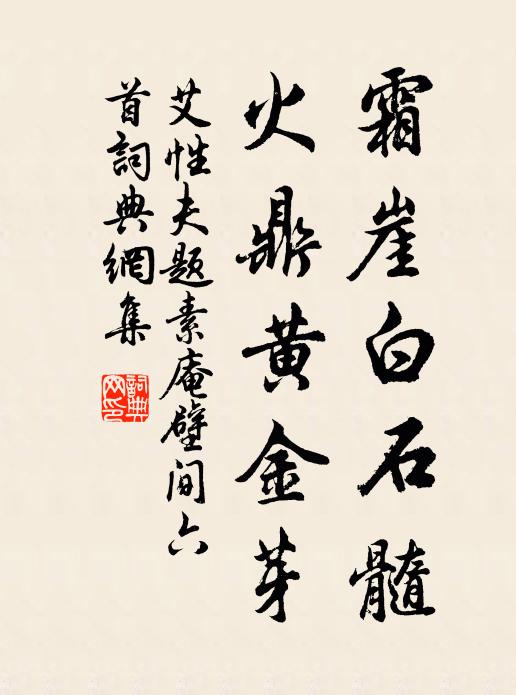 霜崖白石髓
火鼎黄金芽
艾性夫题素庵壁间六
首詞典網集
詞典网印